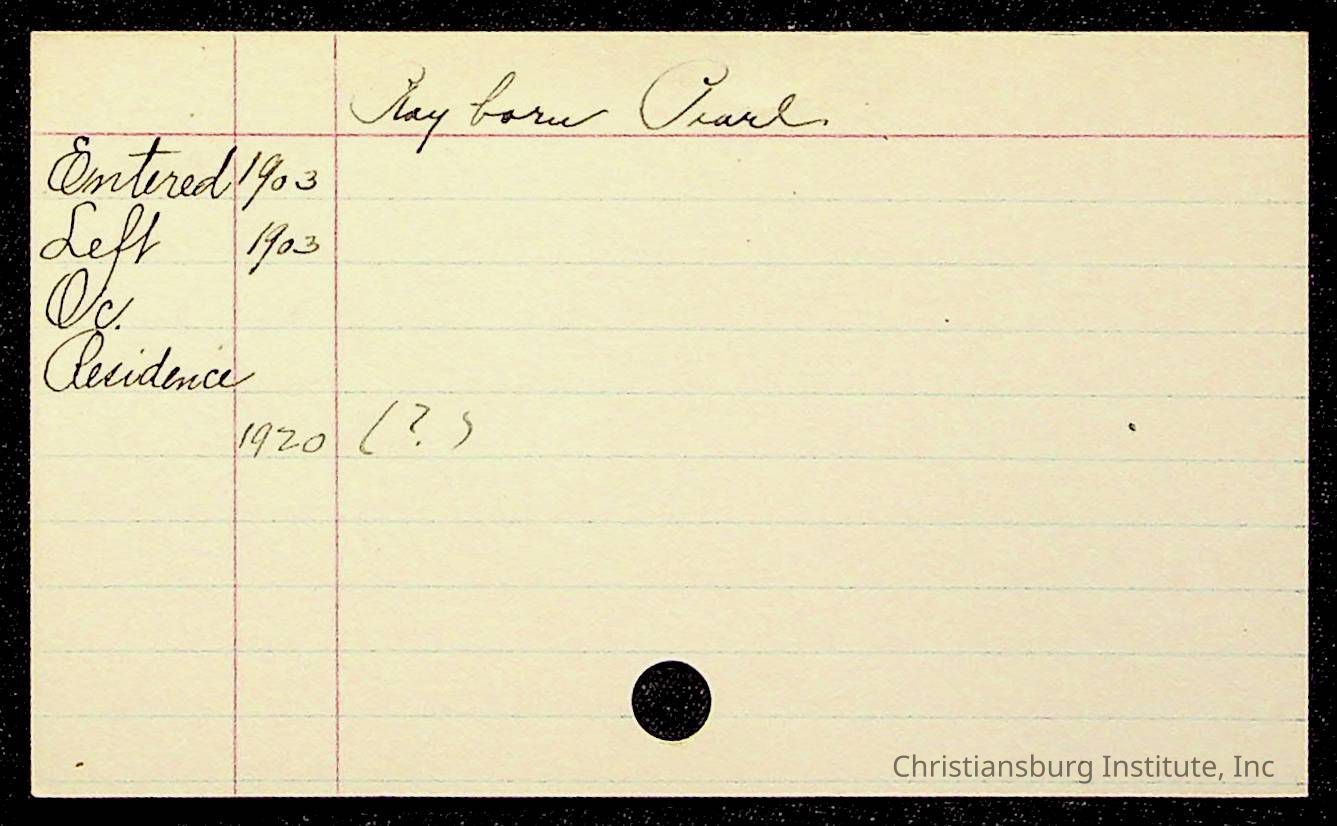 Rayborn Pearl.
Entered 1903
Left 1903
Oc.
Residence
1920 (?)
Christiansburg Institute, Inc